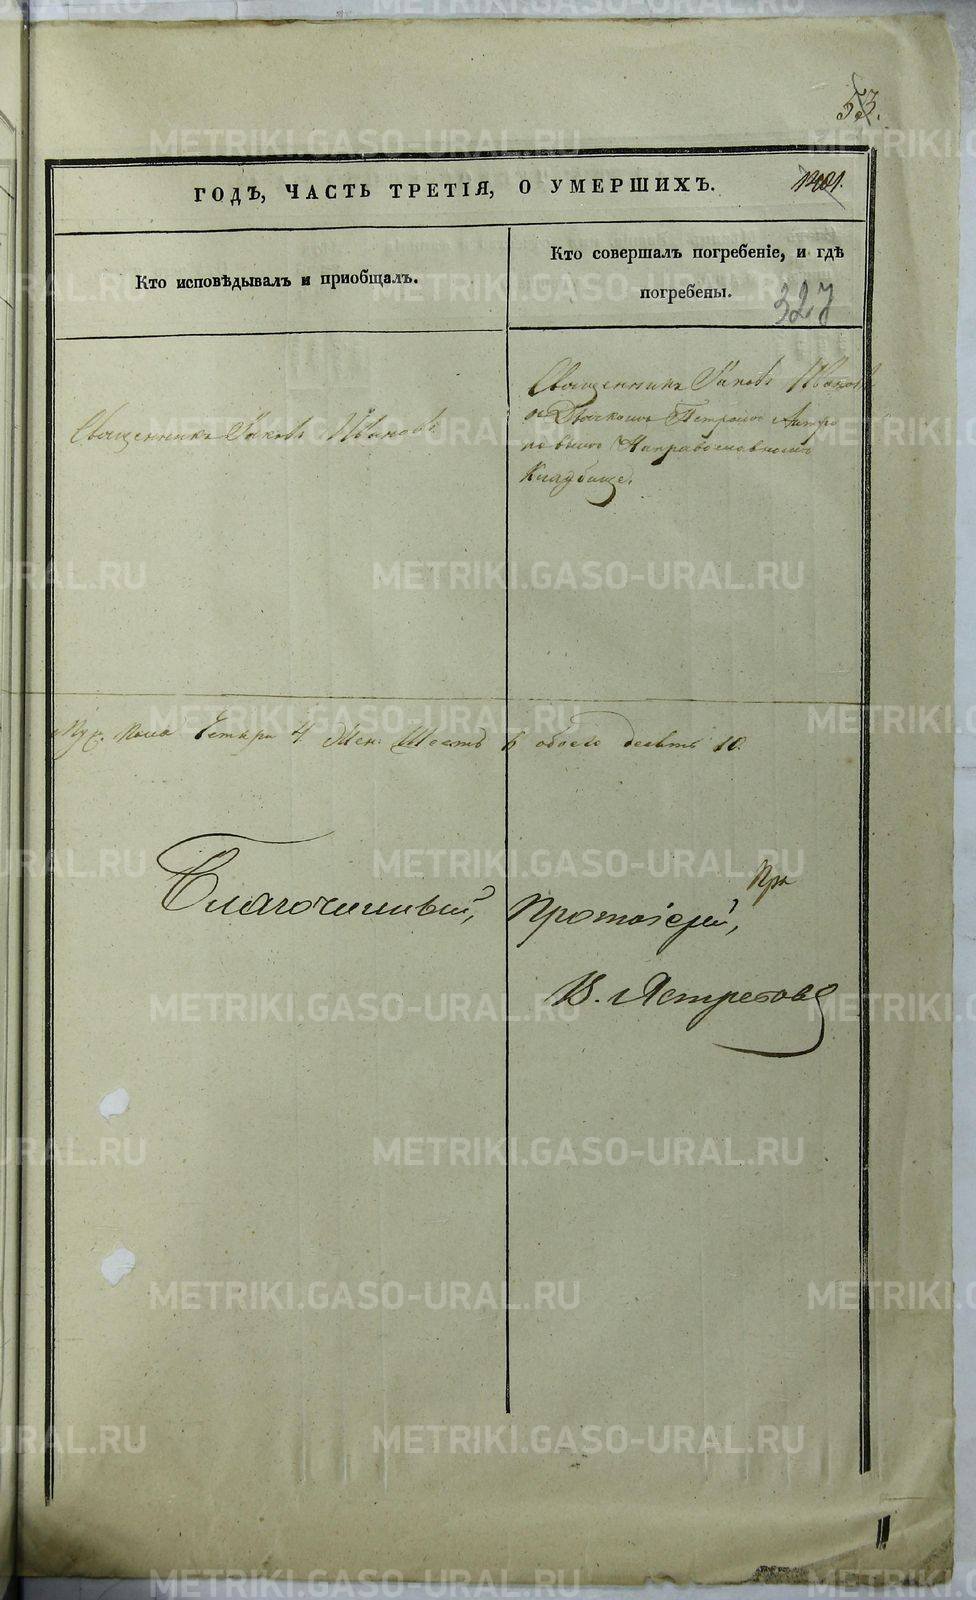 53.
ГОДЪ, ЧАСТЬ ТРЕТІЯ, О УМЕРШИХЪ.
Кто исповѣдывалъ и приобщалъ.
Кто совершалъ погребеніе, и гдѣ
погребены.
327
Священникъ Іаковъ Ивановъ
Священникъ Іаковъ Ивановъ
съ Дьячкомъ Петромъ Антро
повымъ На православномъ
Кладбище.
Муж. пола Четыри 4 Жен. Шесть 6 обоего десять 10.
Благочинный, Протоіерей,
В. Ястребовъ
METRIKI.GASO-URAL.RU